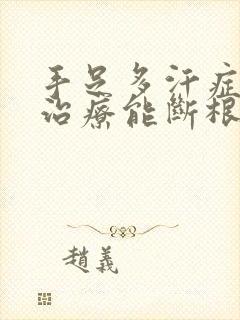 手足多汗症
治療能斷根
趙義